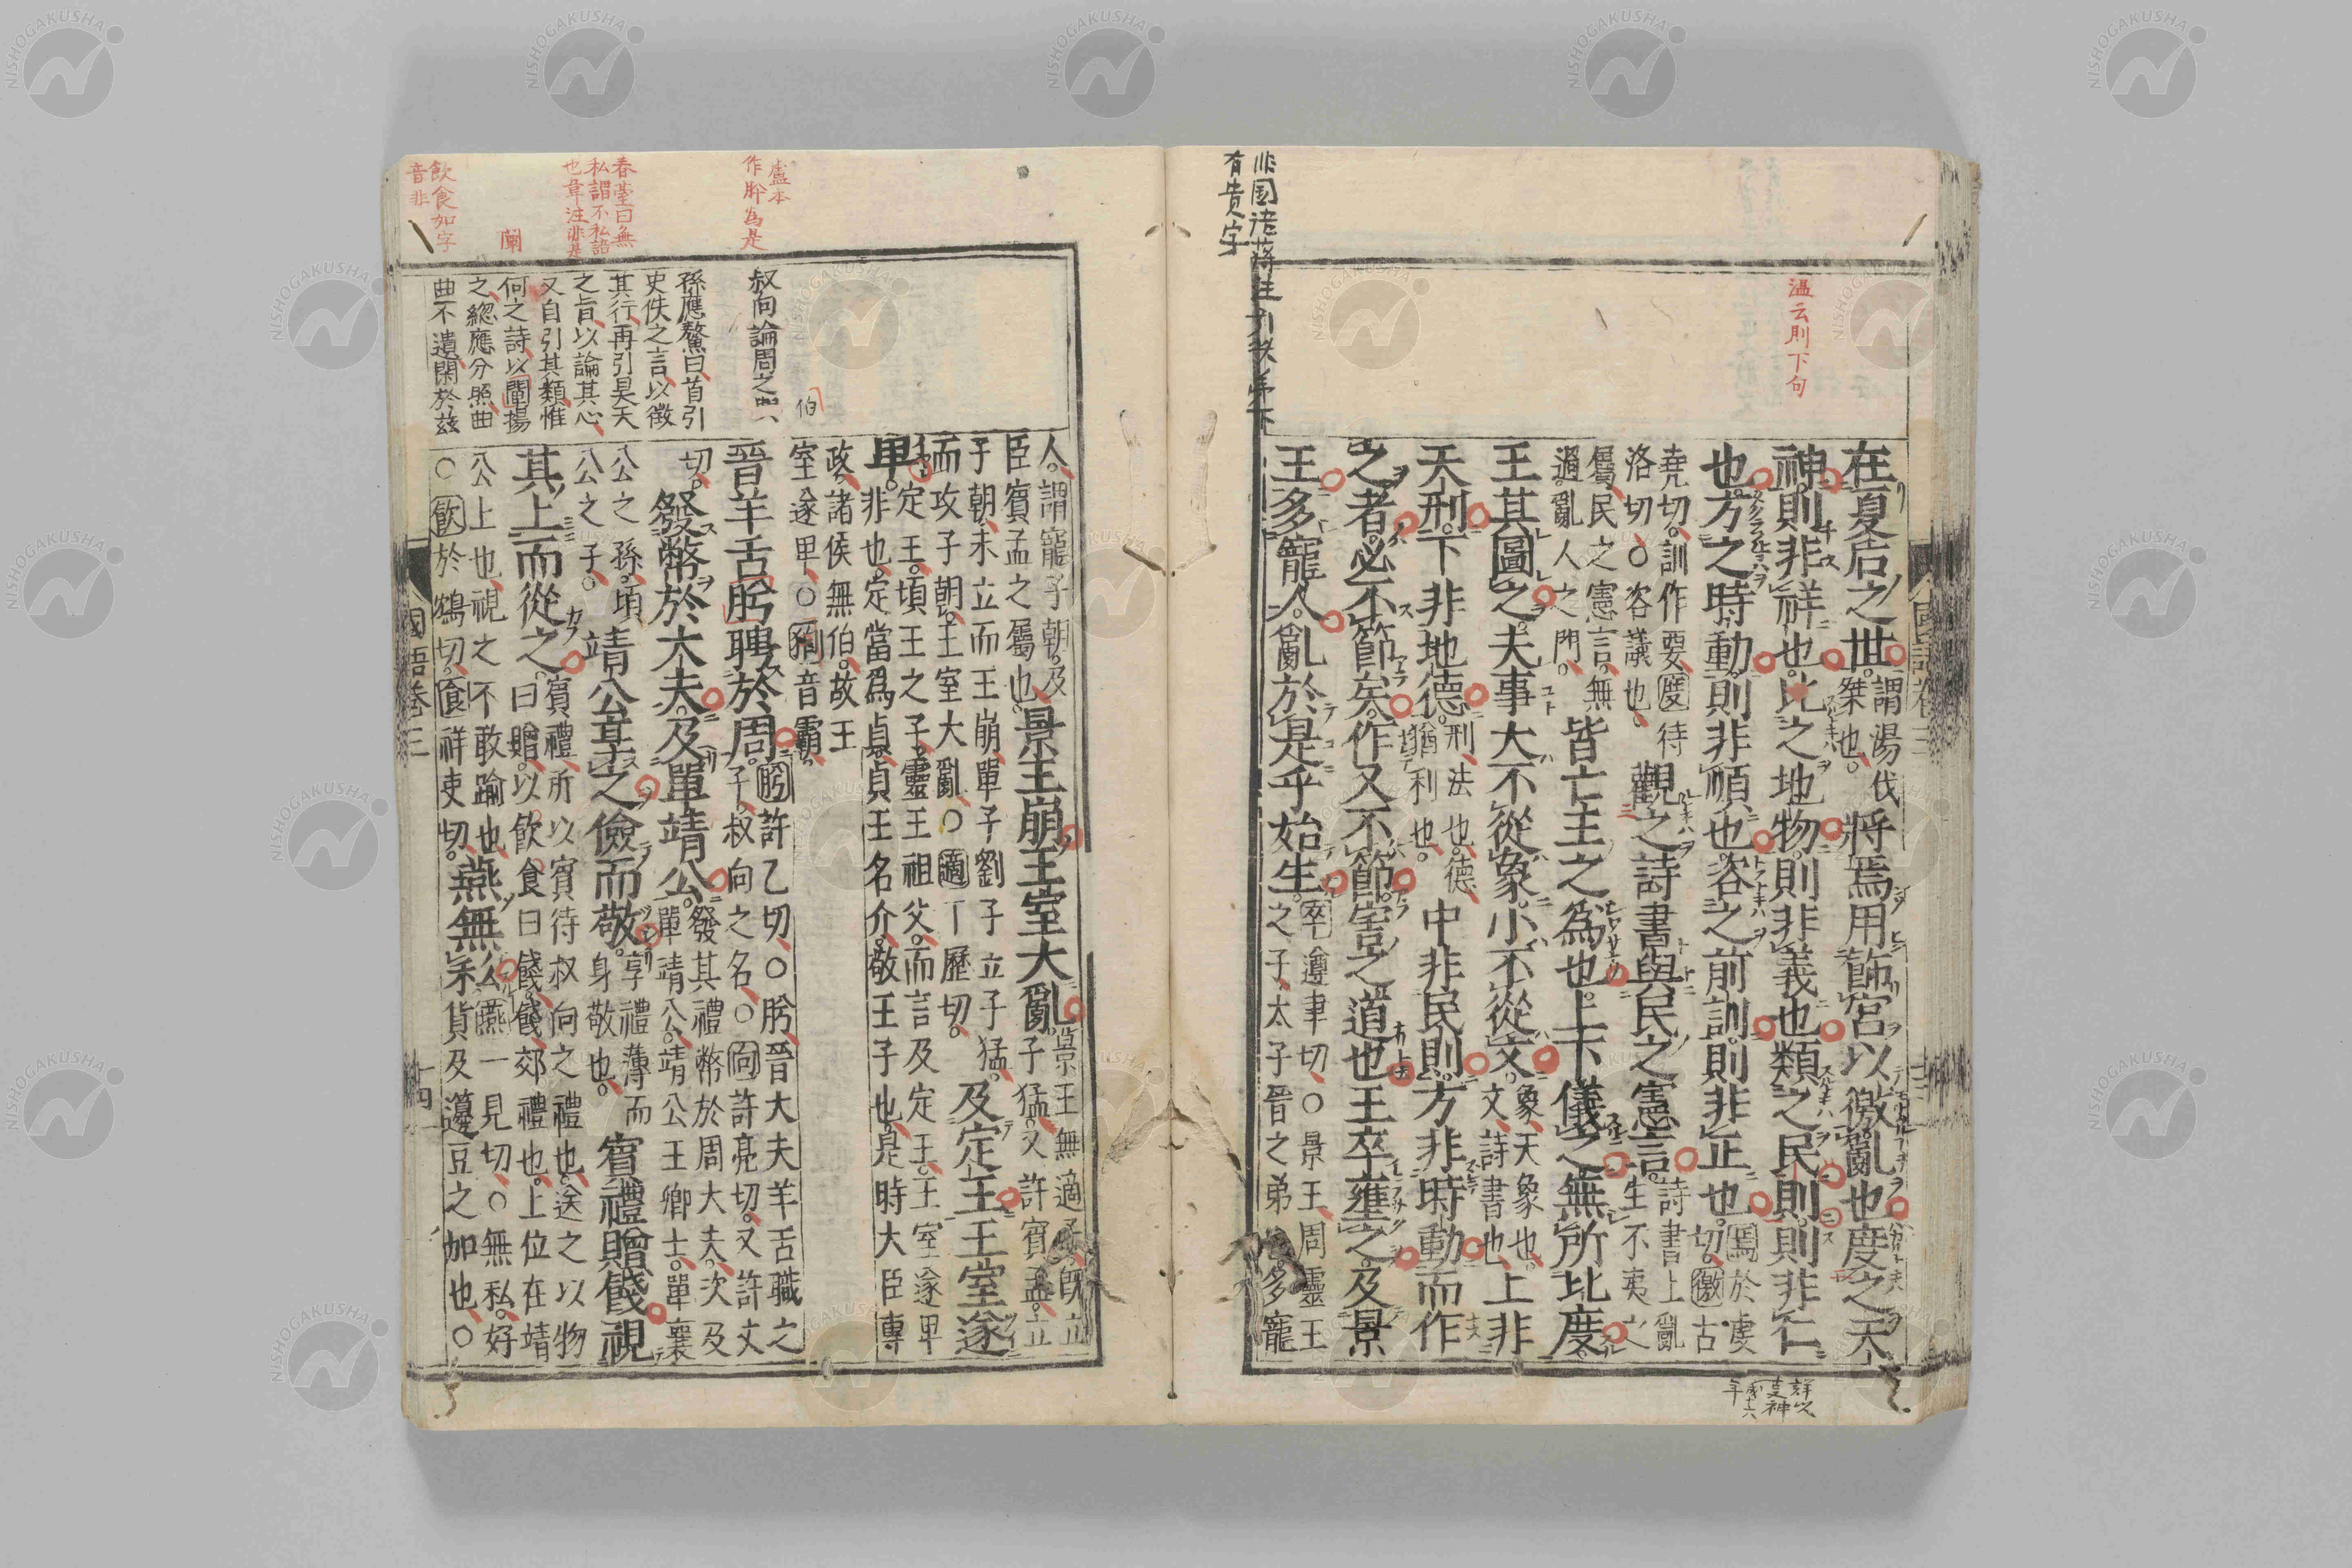 非国語蒋注引
有貴字
温云則下句
在夏后之世謂湯伐桀也將焉用飾宮以徼亂也度之天
神則非祥也比之地物則非義也類之民則則非仁
也方之時動則非順也咨之前訓則非正也焉於虔切徼古
堯切訓作要度待洛切○咨議也觀之詩書與民之憲言詩書上亂生不夷之
屬民之憲言無過亂人之門皆亡王之為也上下儀之無所比度
王其圖之夫事大不從象小不從文象天象也文詩書也上非
天刑下非地德刑法也德猶利也中非民則方非時動而作
之者必不節矣作又不節害之道也王卒壅之及景
王多寵人亂於是乎始生卒遵聿切○景王周靈王之子太子晉之弟也多寵
國語卷三
人謂寵子朝及臣賓孟之屬也景王崩王室大亂景王無適子既立子猛又許賓孟立
子朝未立而王崩單子劉子立子猛而攻子朝王室大亂○適丁歷切及定王王室遂
卑定王頃王之子靈王祖父而言及定王王室遂卑非也定當為貞貞王名介敬王子也是時大臣專
政諸侯無伯故王室遂卑○音霸
伯
晉羊舌肸聘於周肸許乙切○肸晉大夫羊舌職之子叔向之名○向許亮切又許丈
切發幣於大夫及單靖公發其禮幣於周大夫次及單靖公靖公王卿士單襄
公之孫頃公之子靖公享之儉而敬享禮薄而身敬也賓禮贈餞視
其上而從之賓禮所以賓待叔向之禮也送之以物曰贈以飲食曰餞餞郊禮也上位在靖
公上也視之不敢踰也燕無私燕一見切○無私無好貨及籩豆之加也○
飲於鴆切食祥吏切
叔向論周之
孫應鰲曰首引
史佚之言以徵
其行再引昊天
之旨以論其心
又自引其類惟
何之詩以闡揚
之總應分照曲
曲不遺閑於茲
盧本
作肸為是
春臺曰無
私謂不私語
也韋注非是
闡
飲食如字
音非
國語卷三
十四